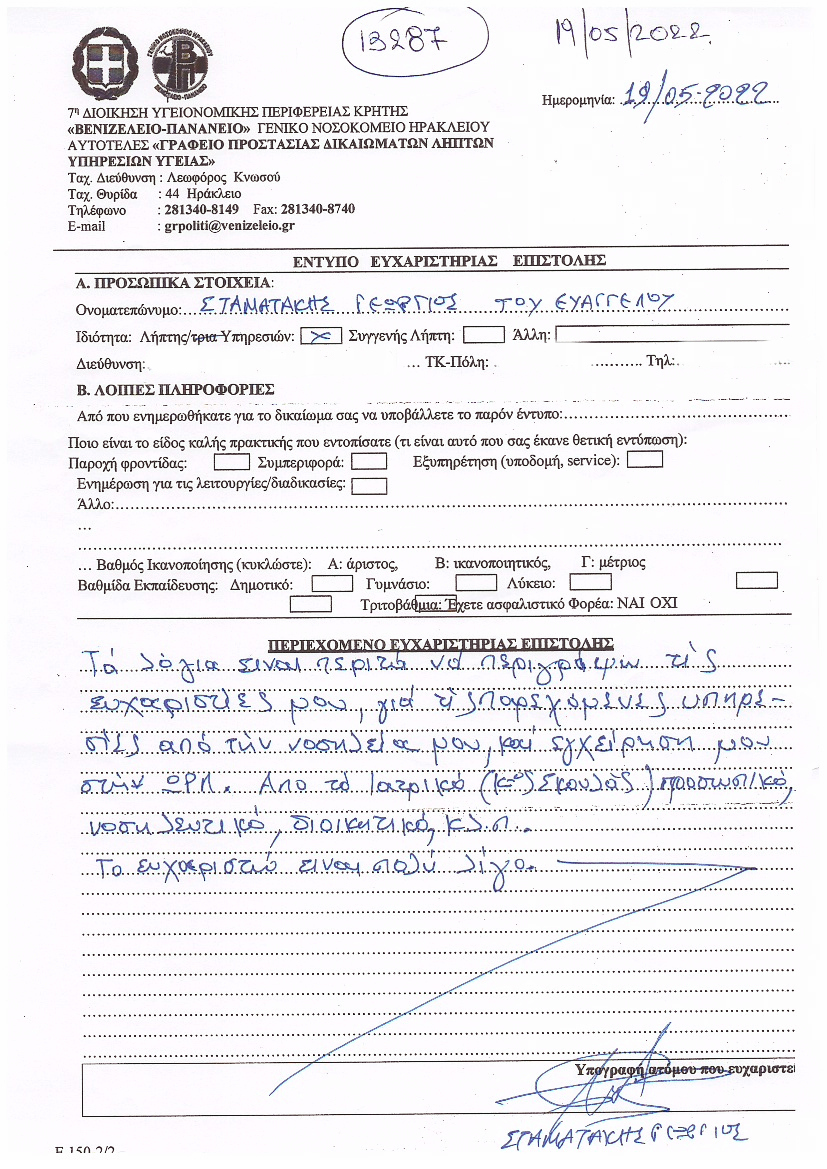 13287
19/05/2022
Ημερομηνία: 19/05-2022
7η ΔΙΟΙΚΗΣΗ ΥΓΕΙΟΝΟΜΙΚΗΣ ΠΕΡΙΦΕΡΕΙΑΣ ΚΡΗΤΗΣ
«ΒΕΝΙΖΕΛΕΙΟ-ΠΑΝΑΝΕΙΟ» ΓΕΝΙΚΟ ΝΟΣΟΚΟΜΕΙΟ ΗΡΑΚΛΕΙΟΥ
ΑΥΤΟΤΕΛΕΣ «ΓΡΑΦΕΙΟ ΠΡΟΣΤΑΣΙΑΣ ΔΙΚΑΙΩΜΑΤΩΝ ΛΗΠΤΩΝ
ΥΠΗΡΕΣΙΩΝ ΥΓΕΙΑΣ»
Ταχ. Διεύθυνση : Λεωφόρος Κνωσού
Ταχ. Θυρίδα : 44 Ηράκλειο
Τηλέφωνο : 281340-8149 Fax: 281340-8740
E-mail : grpoliti@venizeleio.gr
ΕΝΤΥΠΟ ΕΥΧΑΡΙΣΤΗΡΙΑΣ ΕΠΙΣΤΟΛΗΣ
Α. ΠΡΟΣΩΠΙΚΑ ΣΤΟΙΧΕΙΑ:
Ονοματεπώνυμο: ΣΤΑΜΑΤΑΚΗΣ ΓΕΩΡΓΙΟΣ ΤΟΥ ΕΥΑΓΓΕΛΟΥ
Ιδιότητα: Λήπτης/τρια Υπηρεσιών: X Συγγενής Λήπτη: Άλλη:
Διεύθυνση: ... ΤΚ-Πόλη: ........... Τηλ:
Β. ΛΟΙΠΕΣ ΠΛΗΡΟΦΟΡΙΕΣ
Από που ενημερωθήκατε για το δικαίωμα σας να υποβάλλετε το παρόν έντυπο:
Ποιο είναι το είδος καλής πρακτικής που εντοπίσατε (τι είναι αυτό που σας έκανε θετική εντύπωση):
Παροχή φροντίδας: Συμπεριφορά: Εξυπηρέτηση (υποδομή, service):
Ενημέρωση για τις λειτουργίες/διαδικασίες:
Άλλο:
...
... Βαθμός Ικανοποίησης (κυκλώστε): Α: άριστος, Β: ικανοποιητικός, Γ: μέτριος
Βαθμίδα Εκπαίδευσης: Δημοτικό: Γυμνάσιο: Λύκειο:
Τριτοβάθμια: Έχετε ασφαλιστικό Φορέα: ΝΑΙ ΟΧΙ
ΠΕΡΙΕΧΟΜΕΝΟ ΕΥΧΑΡΙΣΤΗΡΙΑΣ ΕΠΙΣΤΟΛΗΣ
Τά λόγια ειναι περιτά νά περιγράψων τίς
ευχαριστίες μου, γιά τίς παρεχόμενες υπηρε-
σίες από τήν νοσηλεία μου, καί εγχείρηση μου
στήν ΩΡΛ. Απο τό Ιατρικό (Κο Σκουλάς) προσωπικό,
νοσηλευτικό, διοικητικό, κλπ.
Το ευχαριστώ ειναι πολύ λίγο.
Υπογραφή ατόμου που ευχαριστε
ΣΤΑΜΑΤΑΚΗΣ ΓΕΩΡΓΙΟΣ